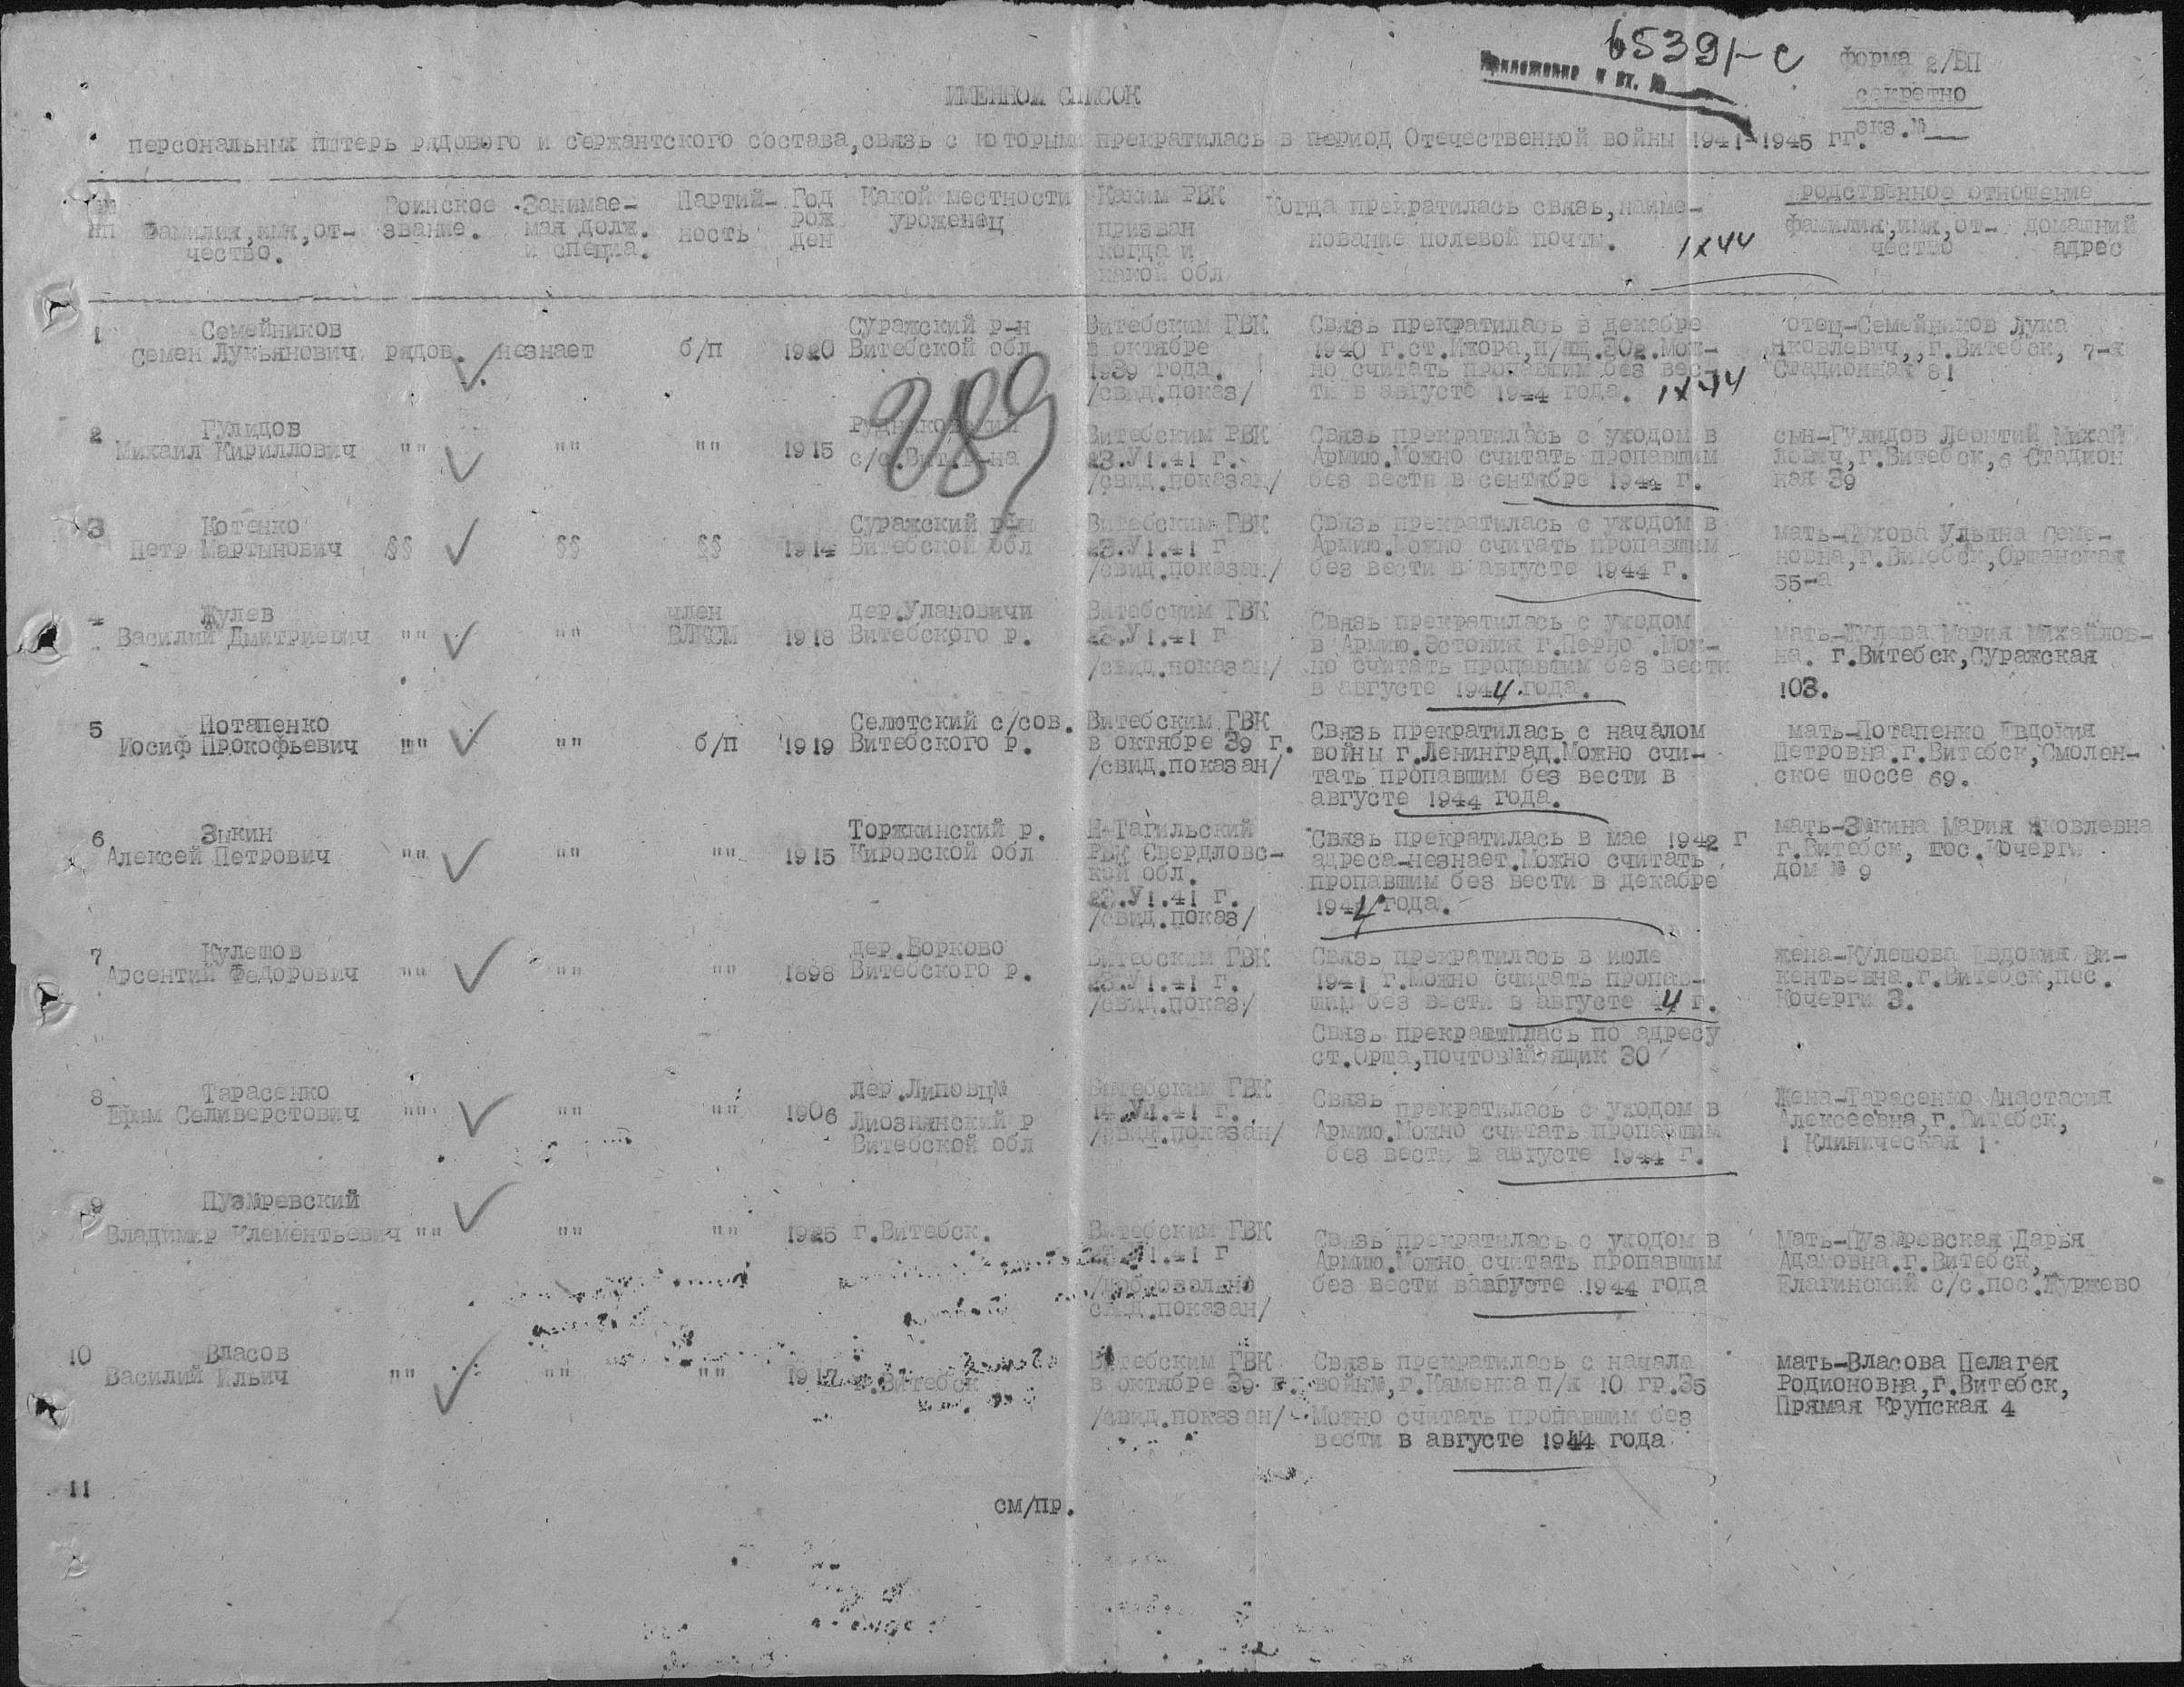 65391-с
Приложение к вх. №
форма 2/БП
секретно
экз.№
ИМЕННОЙ СПИСОК
персональных потерь рядового и сержантского состава,связь с которыми прекратилась в период Отечественной войны 1941-1945 гг.
№№ пп
Фамилия,имя,от-
чество.
Воинское
звание.
Занимае-
мая долж.
и специа.
Партий-
ность
Год
рож
ден
Какой местности
уроженец
Каким РВК
призван
когда и
какой обл
Когда прекратилась связь,наиме-
нование полевой почты.
1X44
родственное отношение
фамилия,имя,от-
чество
домашний
адрес
1
Семейников
Семен Лукьянович
рядов.
незнает
б/п
1920
Суражский р-н
Витебской обл
Витебским ГВК
в октябре
1939 года.
/свид.показ/
Связь прекратилась в декабре
1940 г.ст.Ижора,п/ящ.302.Мож-
но считать пропавшим без вес-
ти в августе 1944 года.
1X44
отец-Семейников Лука
Яковлевич,,г.Витебск, 7-я
Стадионная 81
289
2
Гулидов
Михаил Кириллович
""
""
""
1915
с/с.Вит.р-на
Витебским РВК
23.У1.41 г.
/свид.показан/
Связь прекратилась с уходом в
Армию.Можно считать пропавшим
без вести в сентябре 1944 г.
сын-Гулидов Леонтий Михай
лович,г.Витебск,6 Стадион
ная 39
3
Котенко
Петр Мартынович
§§
§§
§§
1914
Суражский р-н
Витебской обл
Витебским ГВК
23.У1.41 г
/свид.показан/
Связь прекратилась с уходом в
Армию.Можно считать пропавшим
без вести в августе 1944 г.
мать-Пухова Ульяна Семе-
новна,г.Витебск,Оршанская
55-а
4
Жулев
Василий Дмитриевич
""
""
член
ВЛКСМ
1918
дер.Улановичи
Витебского р.
Витебским ГВК
23.У1.41 г
/свид.показан/
Связь прекратилась с уходом
в Армию.Эстония г.Перно .Мож-
но считать пропавшим без вести
в августе 1944.года.
мать-Жулева Мария Михайлов-
на. г.Витебск,Суражская
103.
5
Потапенко
Иосиф Прокофьевич
""
""
б/п
1919
Селютский с/сов.
Витебского р.
Витебским ГВК
в октябре 39 г.
/свид.показан/
Связь прекратилась с началом
войны г.Ленинград.Можно счи-
тать пропавшим без вести в
августе 1944 года.
мать-Потапенко Евдокия
Петровна.г.Витебск,Смолен-
ское шоссе 69.
6
Зыкин
Алексей Петрович
""
""
""
1915
Торжкинский р.
Кировской обл
Н-Тагильский
РВК Свердловс-
кой обл.
23.У1.41 г.
/свид.показ/
Связь прекратилась в мае 1942 г
адреса-незнает.Можно считать
пропавшим без вести в декабре
1944 года.
мать-Зыкина Мария Яковлевна
г.Витебск, пос.Кочерги
дом № 9
7
Кулешов
Арсентий Федорович
""
""
""
1898
дер.Борково
Витебского р.
Витебским ГВК
23.У1.41 г.
/свид.показ/
Связь прекратилась в июле
1941 г.Можно считать пропав-
шим без вести в августе 44 г.
Связь прекратилась по адресу
ст.Орша,почтовый ящик 30
жена-Кулешова Евдокия Ви-
кентьевна.г.Витебск,пос.
Кочерги 3.
8
Тарасенко
Ефим Селиверстович
""
""
""
1906
дер.Липовцы
Лиознянский р
Витебской обл
Витебским ГВК
14.У1.41 г.
/свид.показан/
Связь
прекратилась с уходом в
Армию.Можно считать пропавшим
без вести в августе 1944 г.
Жена-Тарасенко Анастасия
Алексеевна,г.Витебск,
1 Клиническая 1
9
Пузыревский
Владимир Клементьевич
""
""
""
1925
г.Витебск.
Витебским ГВК
У1.41 г
/добровольно
свид.показан/
Связь прекратилась с уходом в
Армию.Можно считать пропавшим
без вести вавгусте 1944 года
Мать-Пузыревская Дарья
Адамовна.г.Витебск,
Елагинский с/с.пос.Журжево
10
Власов
Василий Ильич
""
""
""
1917
г.Витебск
Витебским ГВК
в октябре 39 г.
/свид.показан/
Связь прекратилась с начала
войны,г.Каменка п/я 10 гр.35
Можно считать пропавшим без
вести в августе 1944 года
мать-Власова Пелагея
Родионовна,г.Витебск,
Прямая Крупская 4
11
см/пр.